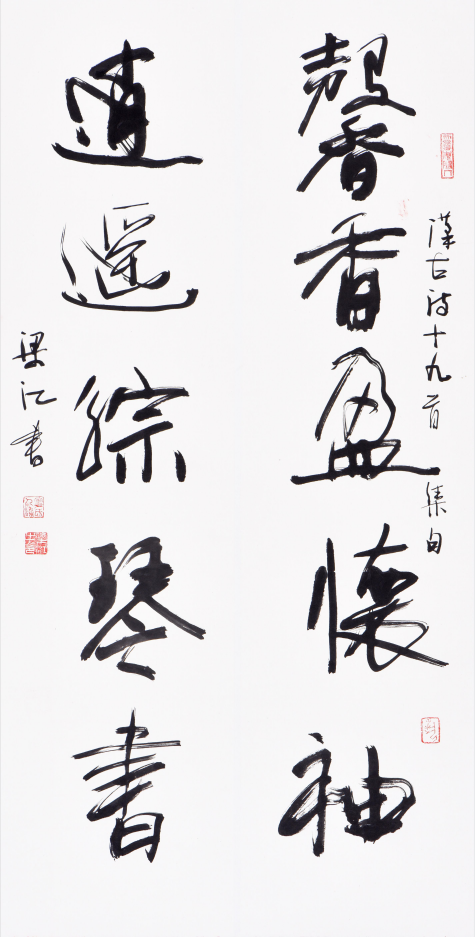 漢古詩十九首 集句
馨香盈懷袖
逍遥綜琴書
梁江書